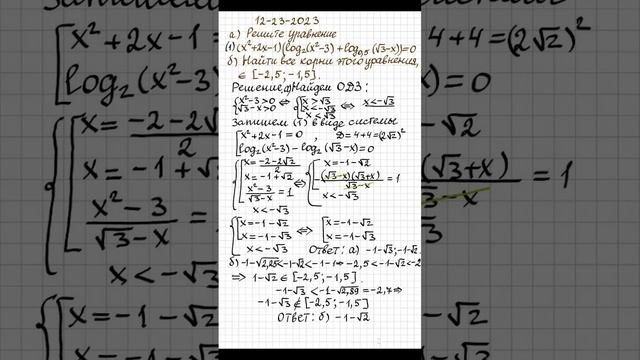 12-23-2023
а) Решите уравнение
(1) (x²+2x-1)(log₂(x²-3)+log₀,₅(√3-x))=0
б) Найти все корни этого уравнения,
∈ [-2,5; -1,5].
Решение. а) Найдем ОДЗ:
{x²-3>0 √3-x>0 ⇔ {[x>√3 x<-√3 x<√3 ⇔ x<-√3
Запишем (1) в виде системы
[x²+2x-1=0, D=4+4=(2√2)²
[log₂(x²-3)-log₂(√3-x)=0
{[x=(-2-2√2)/2 x=-1+√2 (x²-3)/(√3-x)=1 x<-√3 ⇔ {[x=-1-√2 -(√3-x)(√3+x)/(√3-x)=1 x<-√3
{[x=-1-√2 x=-1-√3 x<-√3 ⇔ [x=-1-√2 x=-1-√3
Ответ: а) -1-√3; -1-√2.
б) -1-√2,25<-1-√2<-1-1⇒-2,5<-1-√2<-2
⇒ 1-√2 ∈ [-2,5; -1,5].
-1-√3 <-1-√2,89=-2,7⇒
-1-√3 ∉ [-2,5; -1,5]
Ответ: б) -1-√2